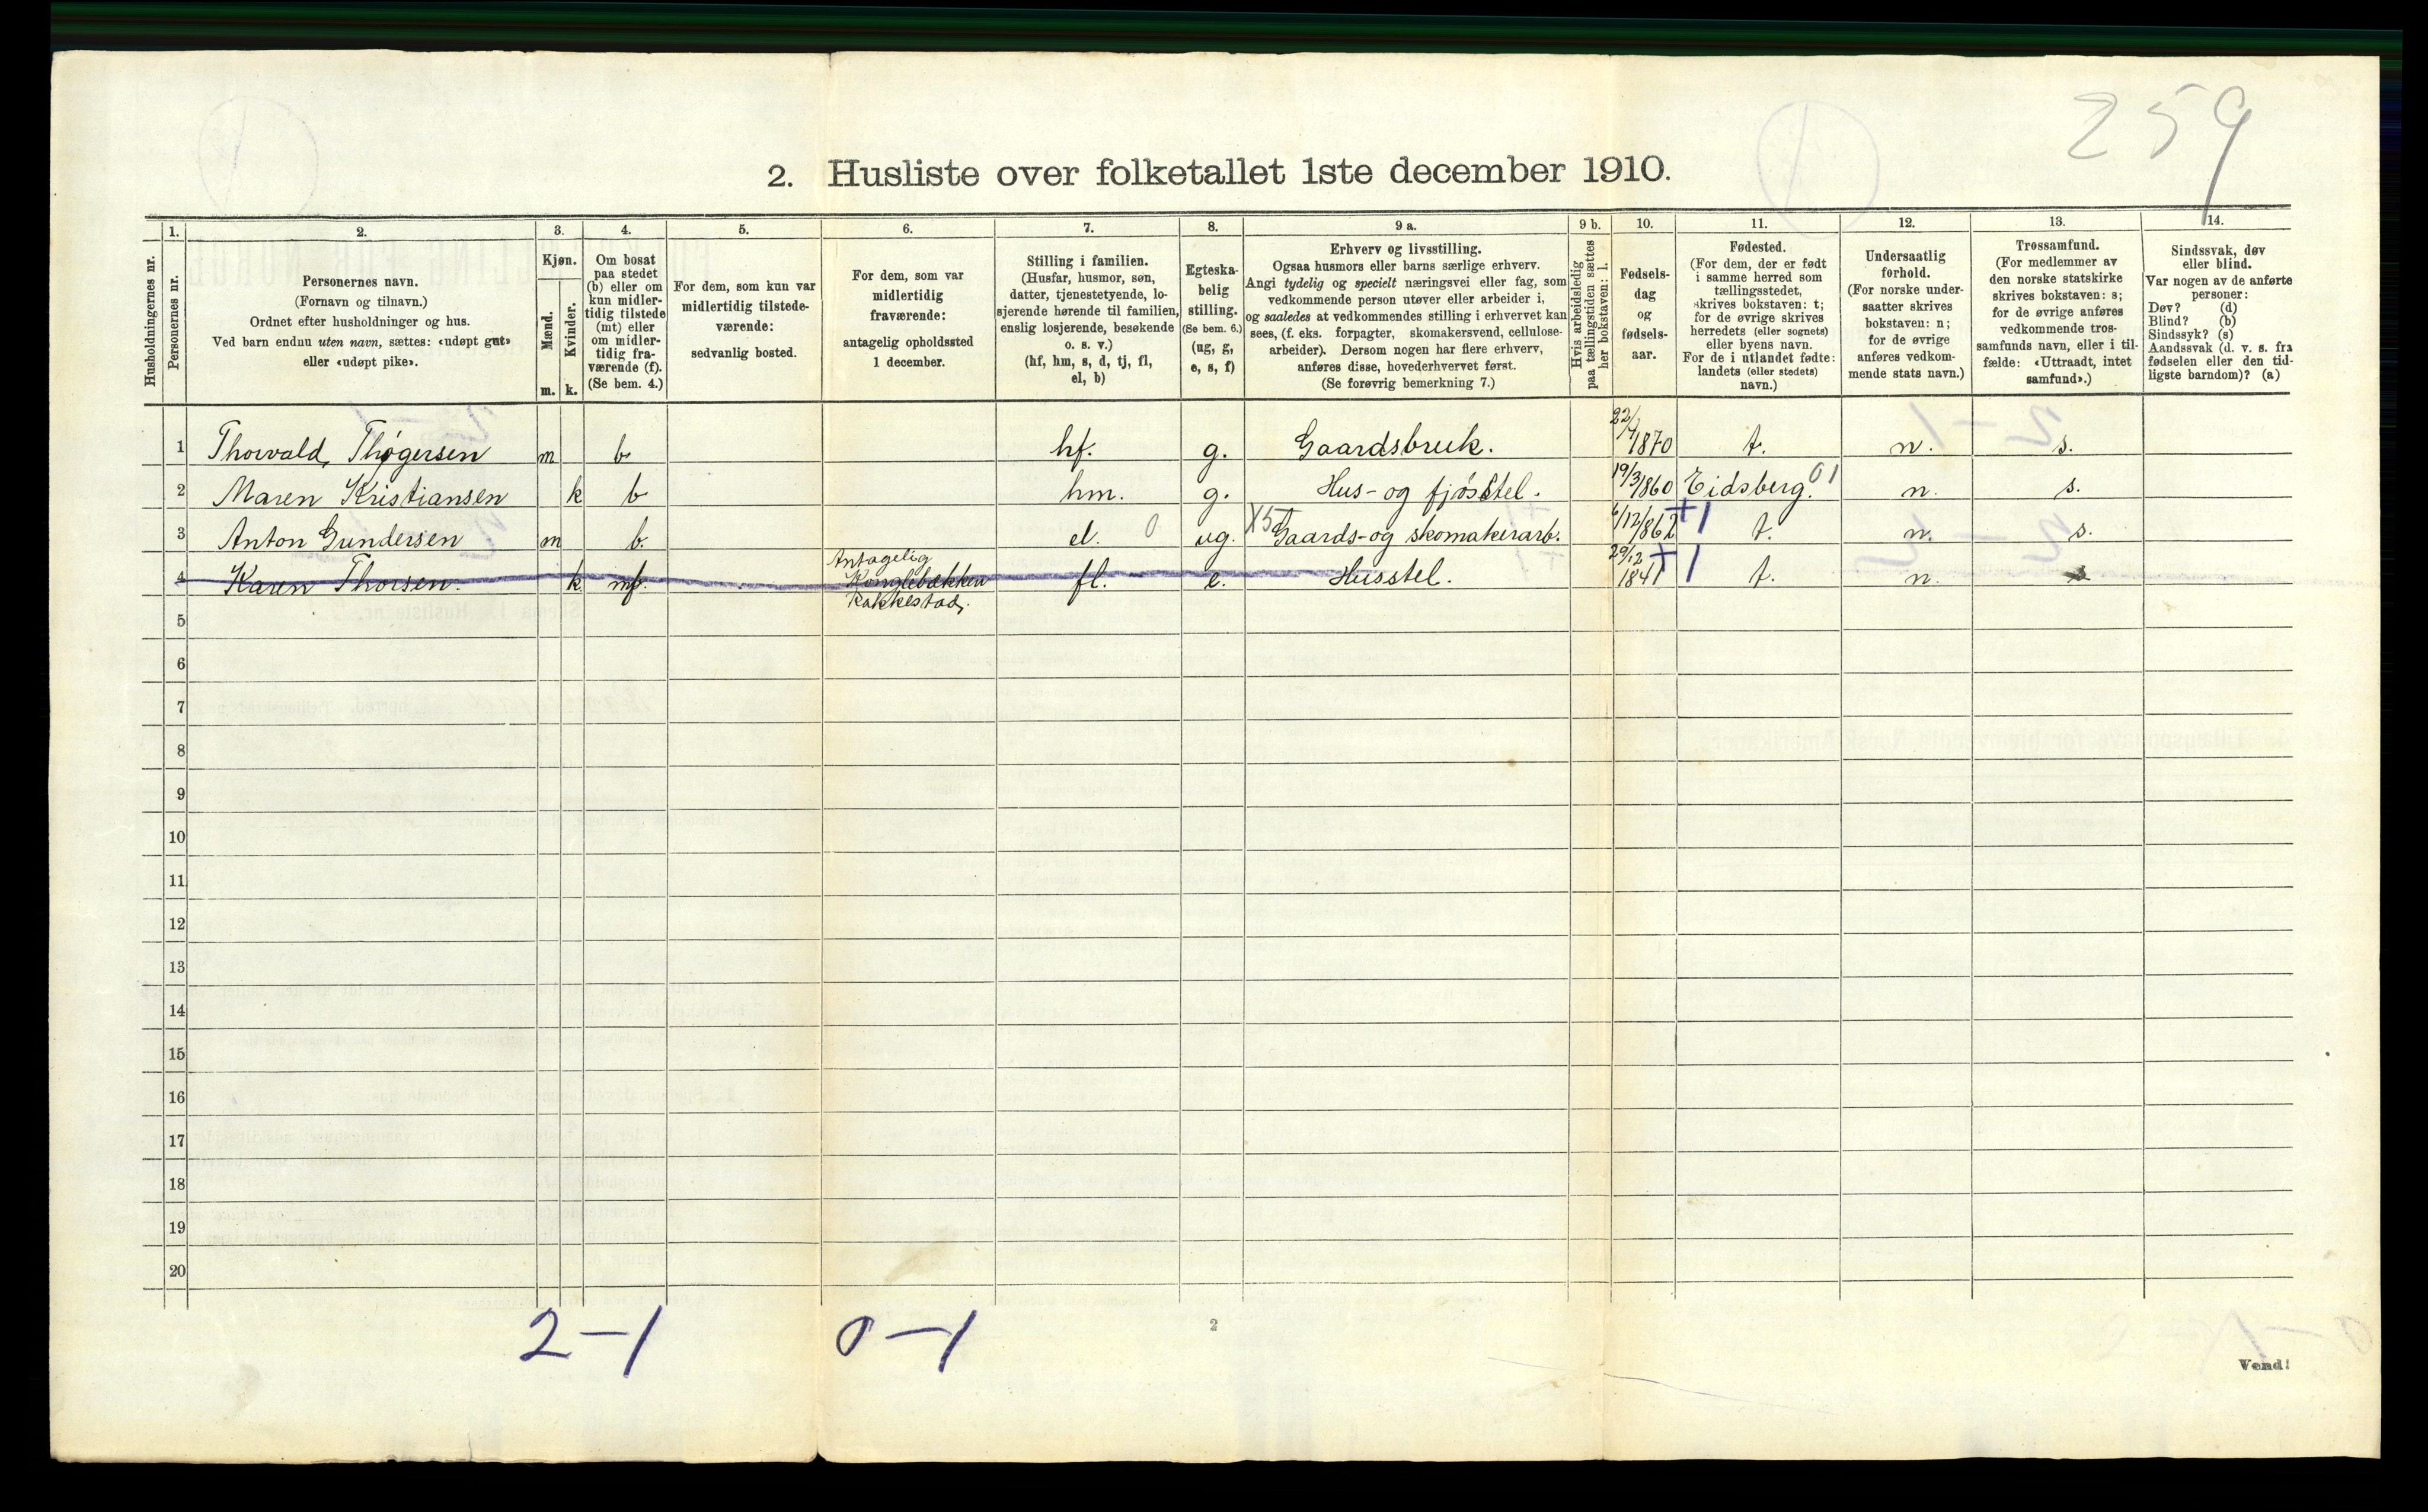 259
2. Husliste over folketallet 1ste december 1910.
Husholdningernes nr.
1.
Personernes nr.
2.
Personernes navn.
(Fornavn og tilnavn.)
Ordnet efter husholdninger og hus.
Ved barn endnu uten navn, sættes: «udøpt gut»
eller «udøpt pike».
3.
Kjøn.
Mænd.
Kvinder.
m.
k.
4.
Om bosat
paa stedet
(b) eller om
kun midler-
tidig tilstede
(mt) eller
om midler-
tidig fra-
værende (f).
(Se bem. 4.)
5.
For dem, som kun var
midlertidig tilstede-
værende:
sedvanlig bosted.
6.
For dem, som var
midlertidig
fraværende:
antagelig opholdssted
1 december.
7.
Stilling i familien.
(Husfar, husmor, søn,
datter, tjenestetyende, lo-
sjerende hørende til familien,
enslig losjerende, besøkende
o. s. v.)
(hf, hm, s, d, tj, fl,
el, b)
8.
Egteska-
belig
stilling.
(Se bem. 6.)
(ug, g,
e, s, f)
9 a.
Erhverv og livsstilling.
Ogsaa husmors eller barns særlige erhverv.
Angi tydelig og specielt næringsvei eller fag, som
vedkommende person utøver eller arbeider i,
og saaledes at vedkommendes stilling i erhvervet kan
sees, (f. eks. forpagter, skomakersvend, cellulose-
arbeider). Dersom nogen har flere erhverv,
anføres disse, hovederhvervet først.
(Se forøvrig bemerkning 7.)
9 b.
Hvis arbeidsledig
paa tællingstiden sættes
her bokstaven: l.
10.
Fødsels-
dag
og
fødsels-
aar.
11.
Fødested.
(For dem, der er født
i samme herred som
tællingsstedet,
skrives bokstaven: t;
for de øvrige skrives
herredets (eller sognets)
eller byens navn.
For de i utlandet fødte:
landets (eller stedets)
navn.)
12.
Undersaatlig
forhold.
(For norske under-
saatter skrives
bokstaven: n;
for de øvrige
anføres vedkom-
mende stats navn.)
13.
Trossamfund.
(For medlemmer av
den norske statskirke
skrives bokstaven: s;
for de øvrige anføres
vedkommende tros-
samfunds navn, eller i til-
fælde: «Uttraadt, intet
samfund».)
14.
Sindssvak, døv
eller blind.
Var nogen av de anførte
personer:
Døv? (d)
Blind? (b)
Sindssyk? (s)
Aandssvak (d. v. s. fra
fødselen eller den tid-
ligste barndom)? (a)
1 Thorvald, Thøgersen m b hf. g. Gaardsbruk. 22/4 1870 t. n. s.
2 Maren Kristiansen k b hm. g. Hus- og fjøsstel. 19/3 1860 Eidsberg. 01 n. s.
3 Anton Gundersen m b. el. 0 ug. X5 Gaards- og skomakerarb. 6/12/862 +1 t. n. s.
4 Karen Thorsen. k mf. Antagelig Konglebækken Rakkestad. fl. e. Husstel. 29/12 1841 +1 t. n. s
5
6
7
8
9
10
11
12
13
14
15
16
17
18
19
20
2-1 0-1
2
Vend!